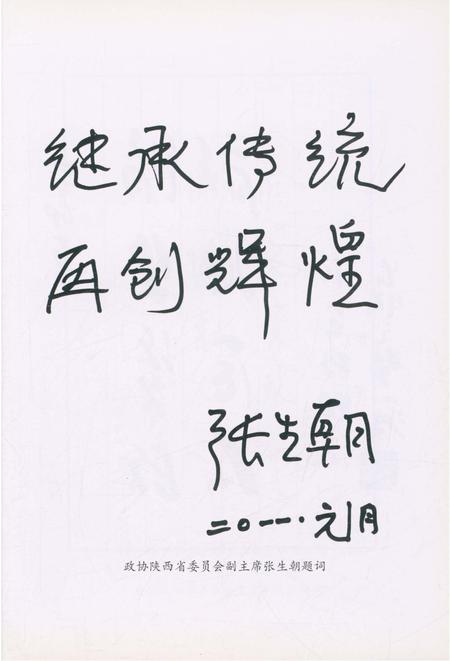 继承传统
再创辉煌
张生朝
二〇一一·元月
政协陕西省委员会副主席张生朝题词